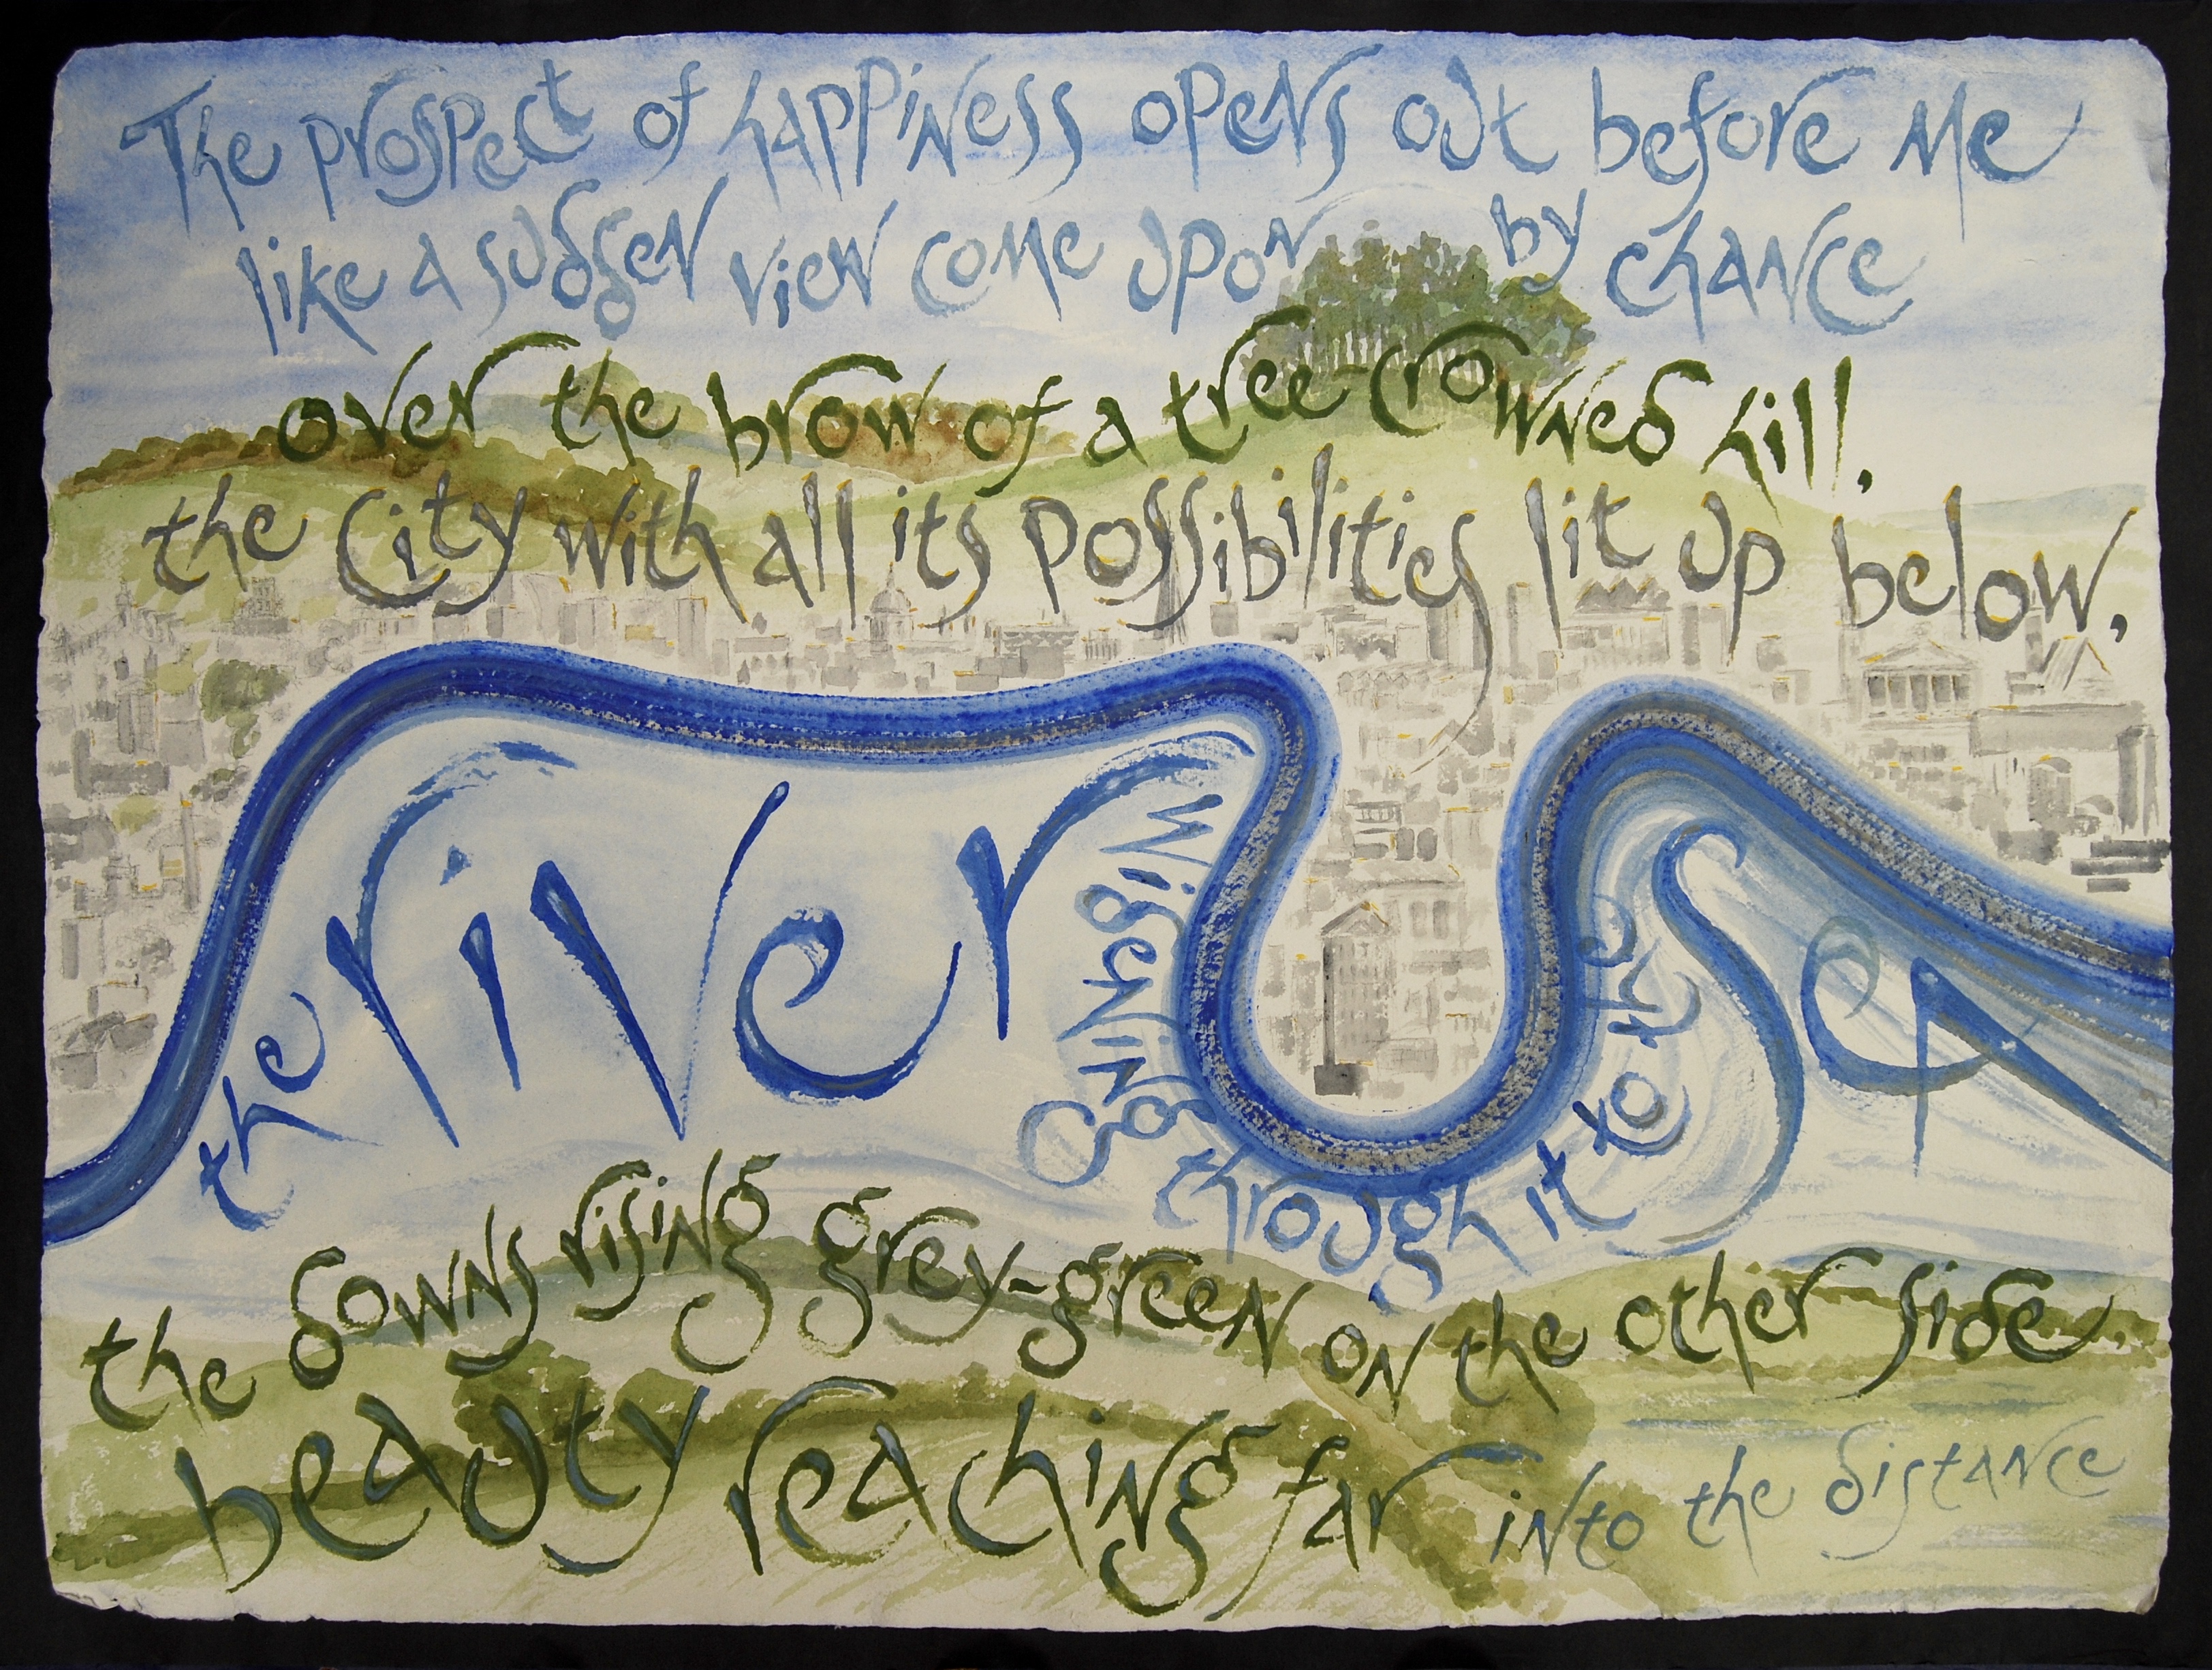 The prospect of happiness opens out before me
like a sudden view come upon by chance
over the brow of a tree-crowned hill,
the City with all its possibilities lit up below,
the river widening through it to the sea
the downs rising grey-green on the other side.
beauty reaching far into the distance